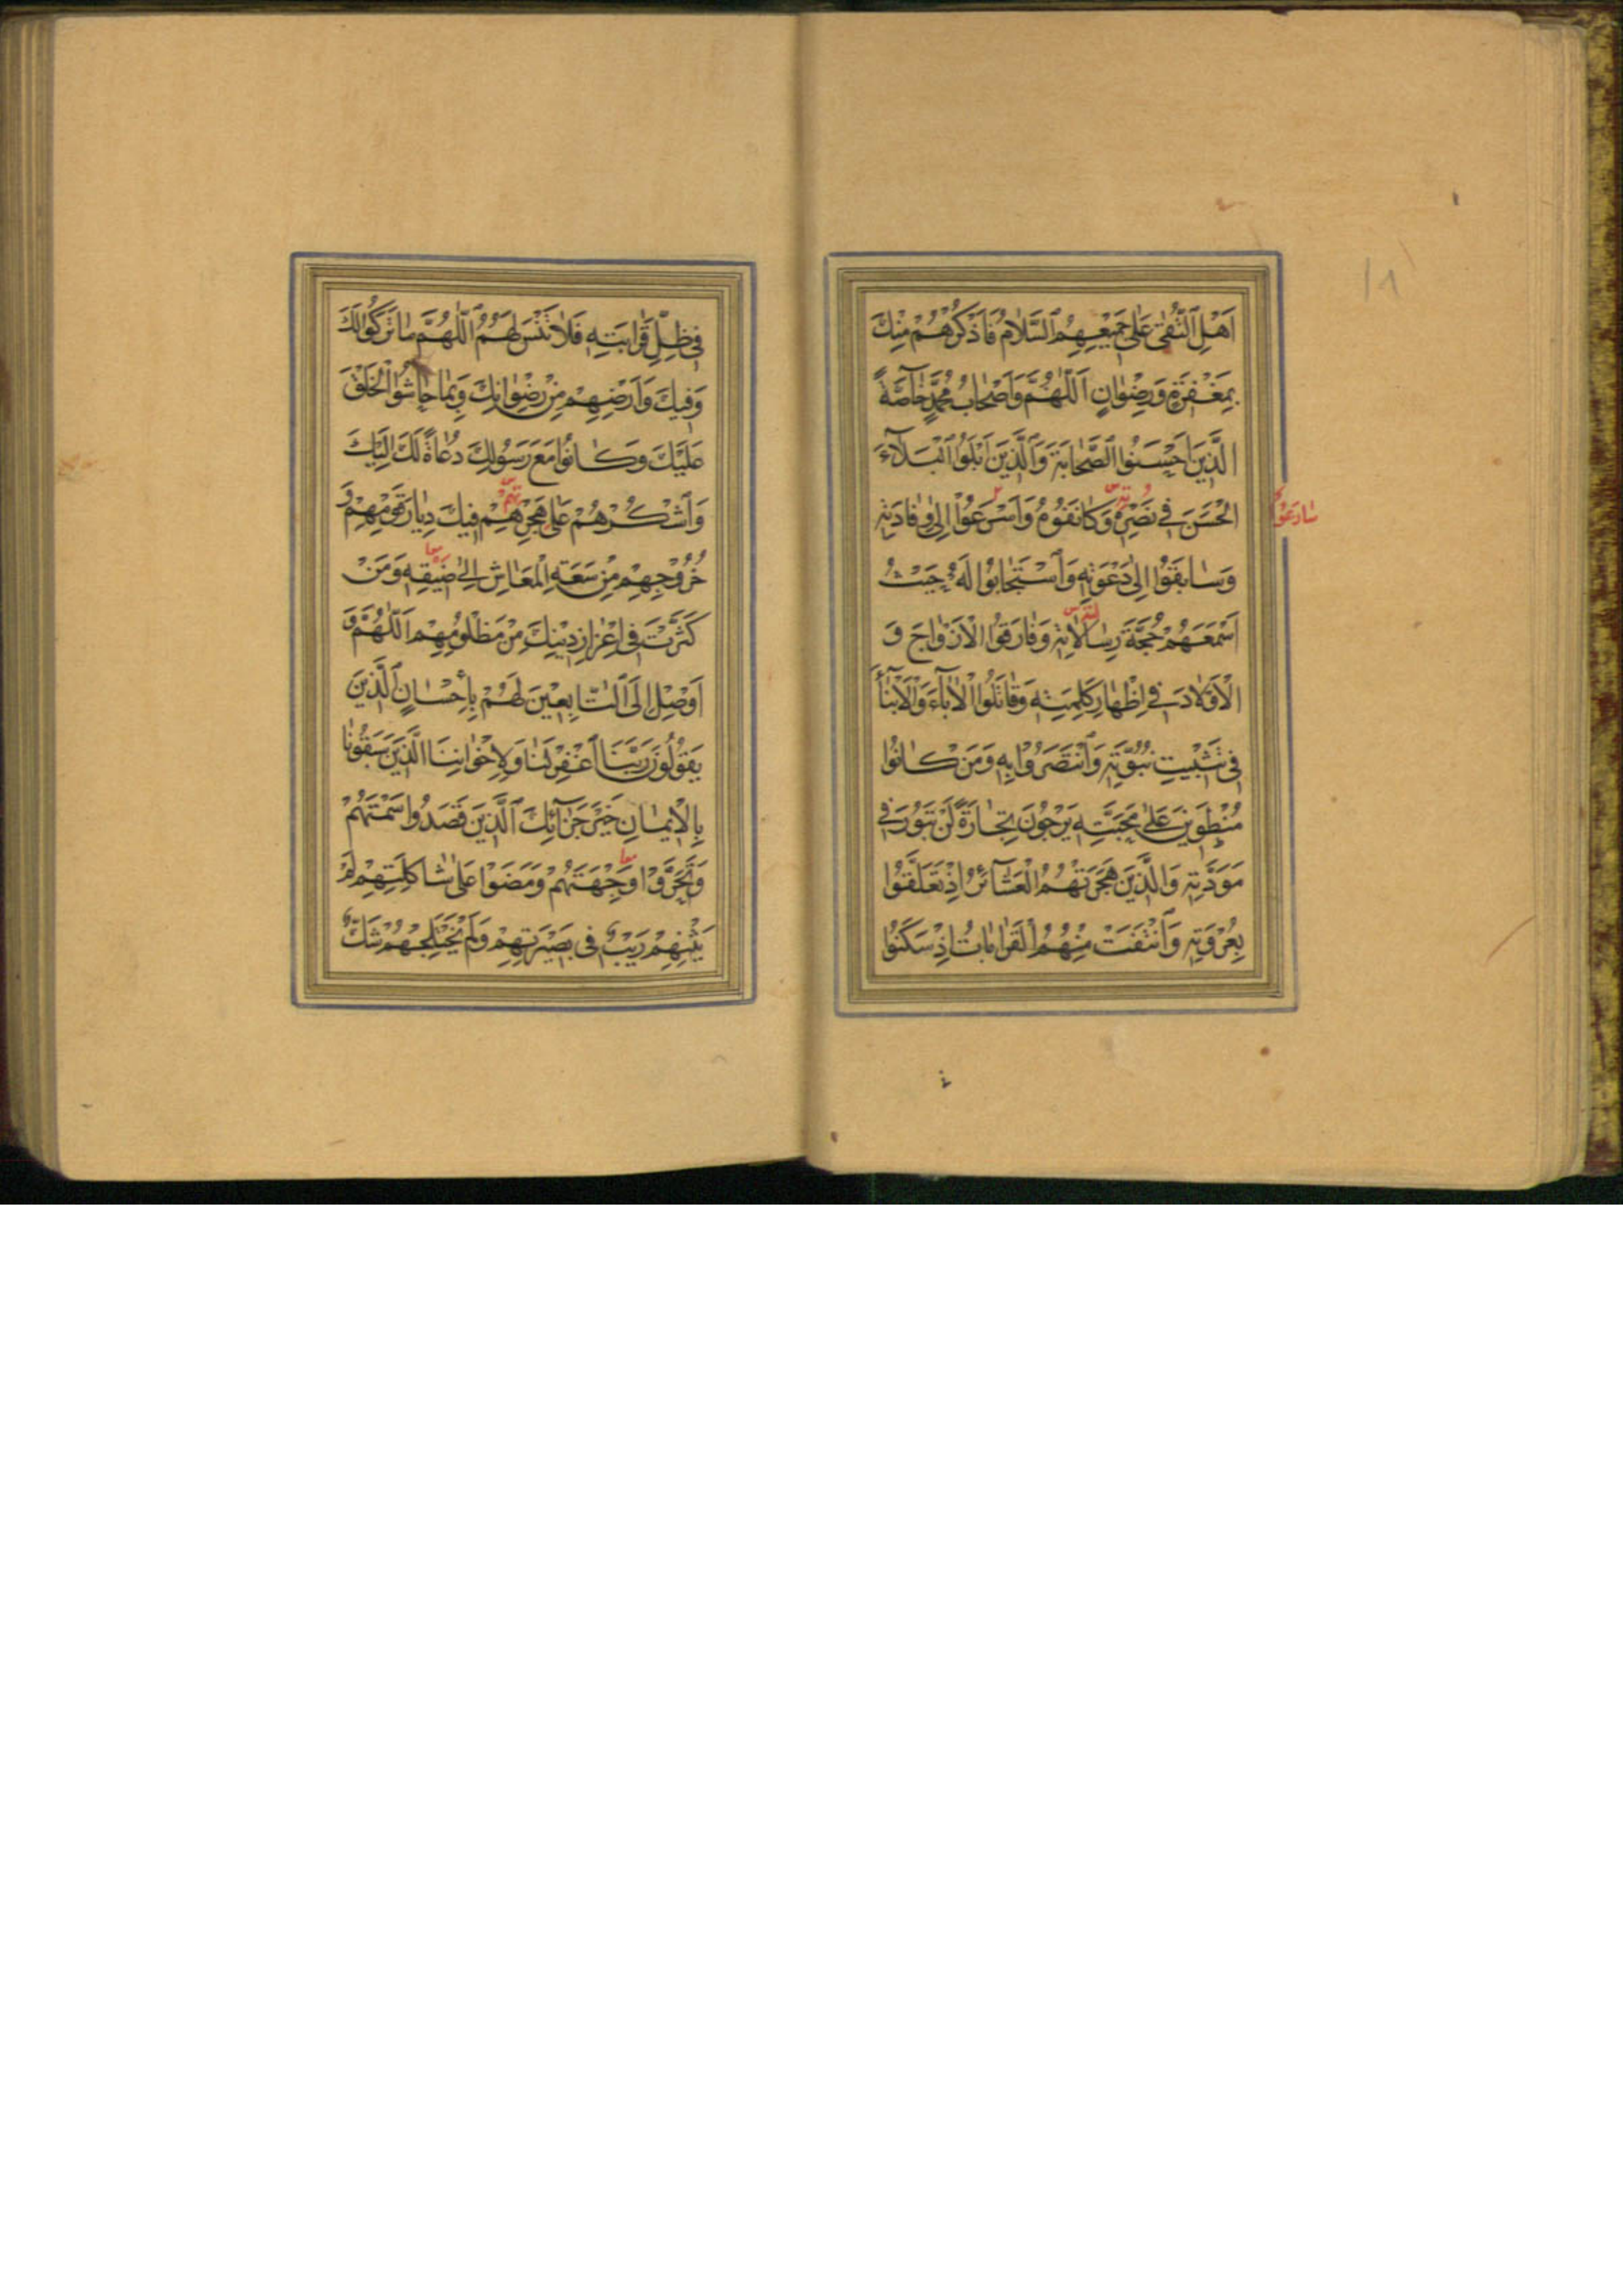 اَهْلِ التُّقٰى عَلٰى جَمِيْعِهِمُ السَّلَامُ فَاذْكُرْهُمْ مِنْكَ
بِمَغْفِرَةٍ وَرِضْوٰانٍ اَللّٰهُمَّ وَاَصْحٰابُ مُحَمَّدٍ خٰآصَّةً
الَّذِيْنَ اَحْسَنُوا الصَّحٰابَةَ وَالَّذِيْنَ اَبْلَوُا الْبَلَآءَ
الْحَسَنَ فِيْ نَصْرِهٖ وَكٰانَفُوْهُ وَاَسْرَعُوْا اِلٰى وِفٰادَتِهٖ
سٰارَعُوْا
وَسٰابَقُوْا اِلٰى دَعْوَتِهٖ وَاسْتَجٰابُوْا لَهٗ حَيْثُ
اَسْمَعَهُمْ حُجَّةَ رِسٰالَاتِهٖ وَفٰارَقُوا الْاَزْوٰاجَ وَ
الْاَوْلَادَ فِيْ اِظْهٰارِ كَلِمَتِهٖ وَقٰاتَلُوا الْاٰبٰآءَ وَالْاَبْنٰآءَ
فِيْ تَثْبِيْتِ نُبُوَّتِهٖ وَانْتَصَرُوْا بِهٖ وَمَنْ كٰانُوْا
مُنْطَوِيْنَ عَلٰى مَحَبَّتِهٖ يَرْجُوْنَ تِجٰارَةً لَنْ تَبُوْرَ فِيْ
مَوَدَّتِهٖ وَالَّذِيْنَ هَجَرَتْهُمُ الْعَشٰآئِرُ اِذْ تَعَلَّقُوْا
بِعُرْوَتِهٖ وَانْتَفَتْ مِنْهُمُ الْقَرٰابٰاتُ اِذْ سَكَنُوْا
فِيْ ظِلِّ قَرٰابَتِهٖ فَلَا تَنْسَ لَهُمُ اللّٰهُمَّ مٰا تَرَكُوْا لَكَ
وَفِيْكَ وَاَرْضِهِمْ مِنْ رِضْوٰانِكَ وَبِمٰا حٰاشُوا الْخَلْقَ
عَلَيْكَ وَكٰانُوْا مَعَ رَسُوْلِكَ دُعٰاةً لَكَ اِلَيْكَ
وَاشْكُرْهُمْ عَلٰى هَجْرِهِمْ فِيْكَ دِيٰارَ قَوْمِهِمْ وَ
خُرُوْجِهِمْ مِنْ سَعَةِ الْمَعٰاشِ اِلٰى ضَيْقِهٖ وَمَنْ
كَثَّرْتَ فِيْ اِعْزٰازِ دِيْنِكَ مِنْ مَظْلُوْمِهِمْ اَللّٰهُمَّ وَ
اَوْصِلْ اِلَى التّٰابِعِيْنَ لَهُمْ بِاِحْسٰانٍ الَّذِيْنَ
يَقُوْلُوْنَ رَبَّنَا اغْفِرْ لَنٰا وَلِاِخْوٰانِنَا الَّذِيْنَ سَبَقُوْنٰا
بِالْاِيْمٰانِ خَيْرَ جَزٰآئِكَ الَّذِيْنَ قَصَدُوْا سَمْتَهُمْ
وَتَحَرَّوْا وِجْهَتَهُمْ وَمَضَوْا عَلٰى شٰاكِلَتِهِمْ لَمْ
يَثْنِهِمْ رَيْبٌ فِيْ بَصِيْرَتِهِمْ وَلَمْ يَخْتَلِجْهُمْ شَكٌّ